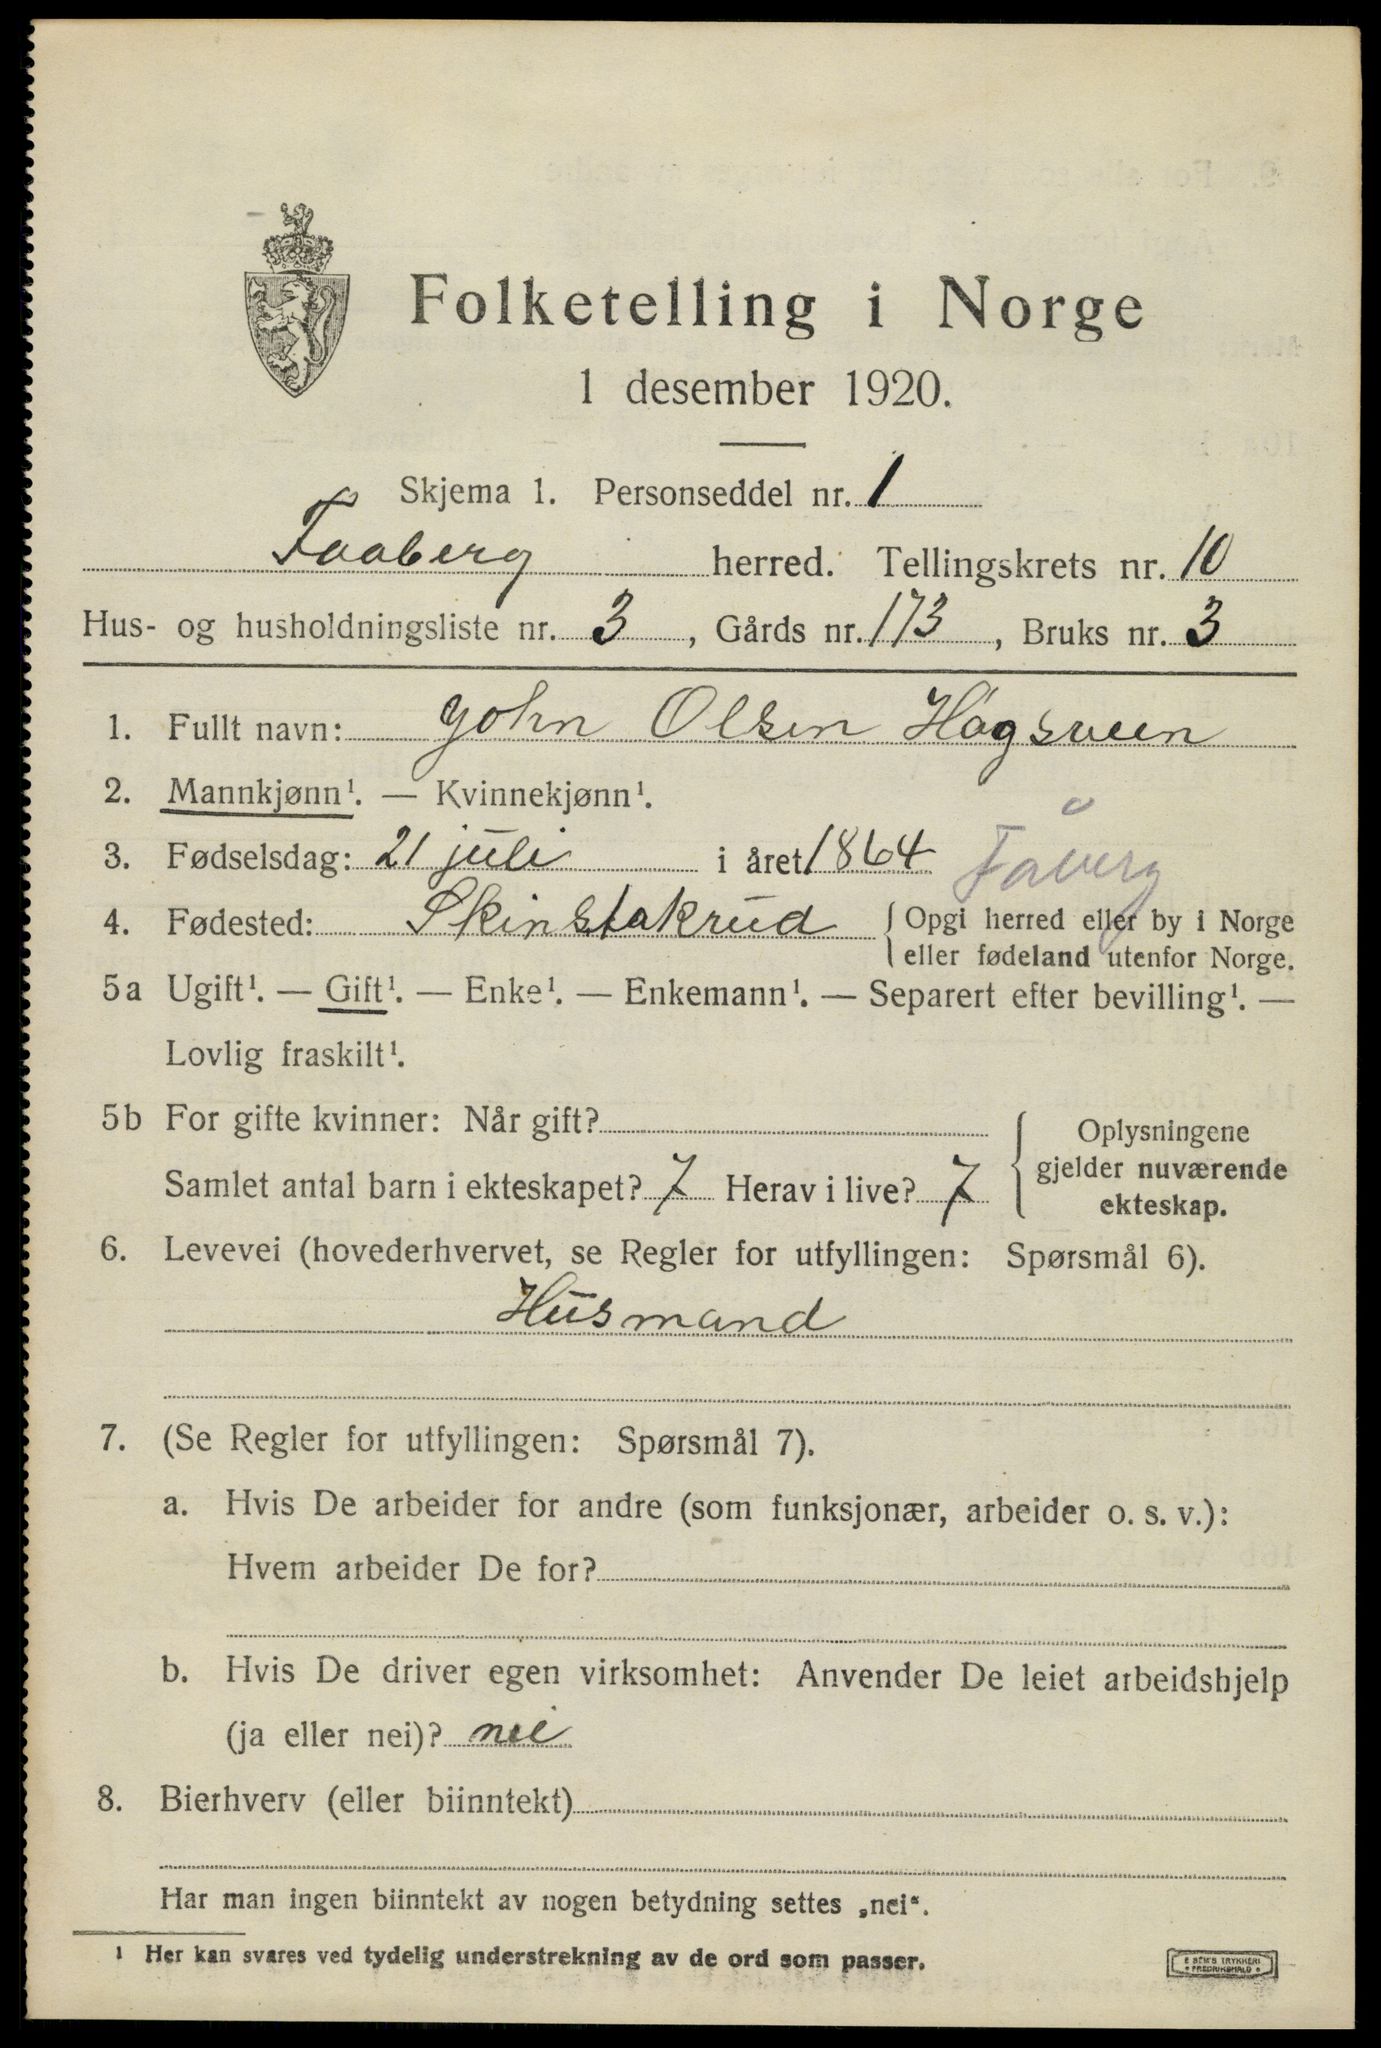 Folketelling i Norge
1 desember 1920.
Skjema 1. Personseddel nr. 1
Faaberg herred. Tellingskrets nr. 10
Hus- og husholdningsliste nr. 3, Gårds nr. 173, Bruks nr. 3
1. Fullt navn: John Olsen Høgsveen
2. Mannkjønn¹. — Kvinnekjønn¹.
3. Fødselsdag: 21 juli i året 1864 Fåberg
4. Fødested: Skinstakrud { Opgi herred eller by i Norge
eller fødeland utenfor Norge.
5a Ugift¹. — Gift¹. — Enke¹. — Enkemann¹. — Separert efter bevilling¹. —
Lovlig fraskilt¹.
5b For gifte kvinner: Når gift?
Samlet antal barn i ekteskapet? 7 Herav i live? 7
Oplysningene
gjelder nuværende
ekteskap.
6. Levevei (hovederhvervet, se Regler for utfyllingen: Spørsmål 6).
Husmand
7. (Se Regler for utfyllingen: Spørsmål 7).
a. Hvis De arbeider for andre (som funksjonær, arbeider o. s. v.):
Hvem arbeider De for?
b. Hvis De driver egen virksomhet: Anvender De leiet arbeidshjelp
(ja eller nei)? nei
8. Bierhverv (eller biinntekt)
Har man ingen biinntekt av nogen betydning settes „nei“.
¹ Her kan svares ved tydelig understrekning av de ord som passer.
TRYKKERI
FREDRIKSHALD